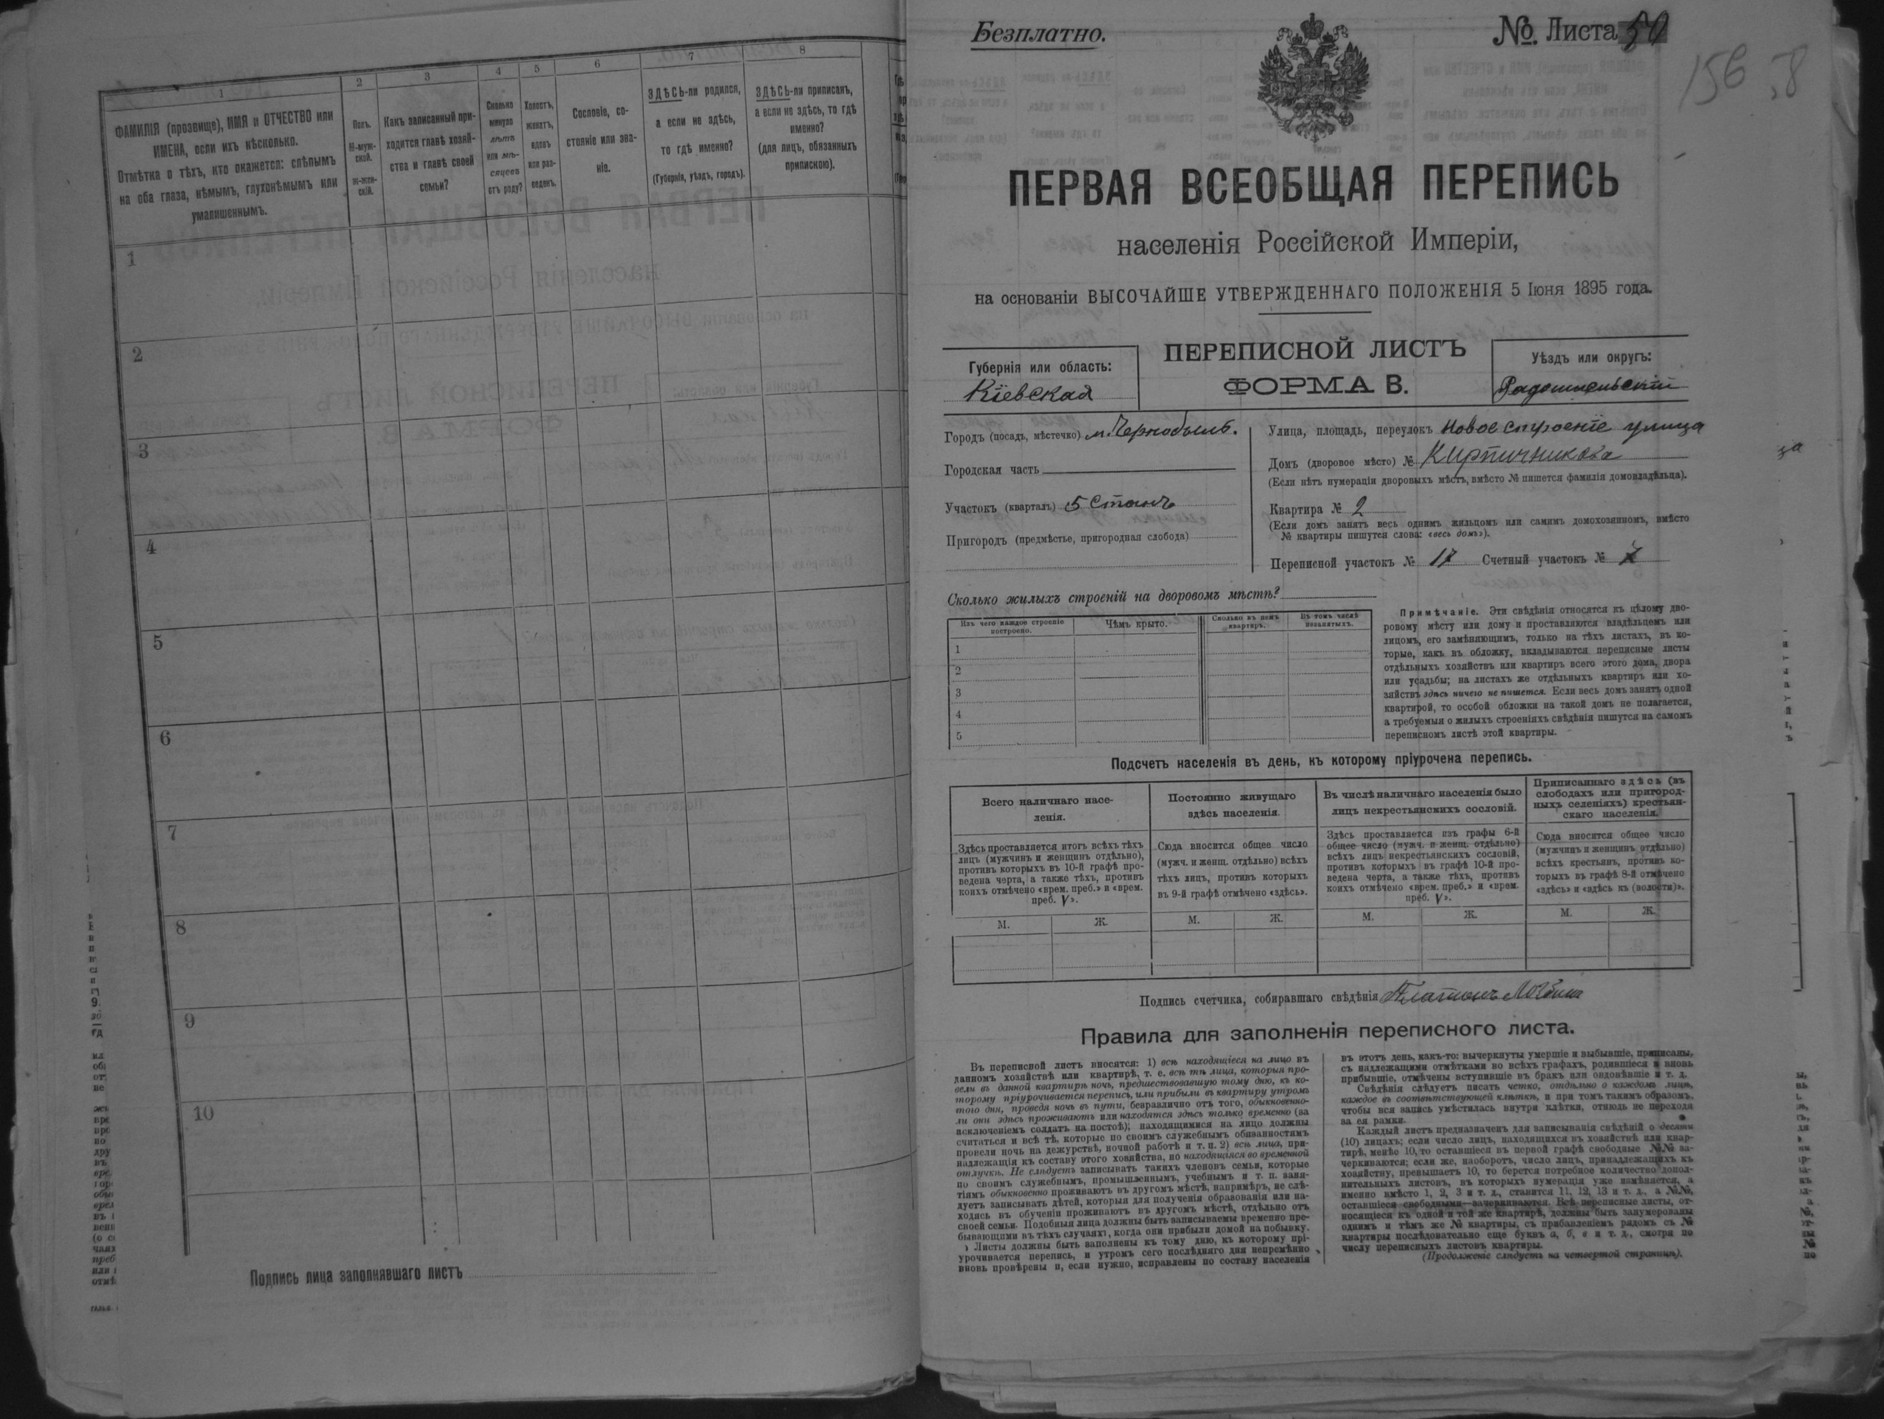 1
ФАМИЛІЯ (прозвище), ИМЯ и ОТЧЕСТВО или
ИМЕНА, если ихъ нѣсколько.
Отмѣтка о тѣхъ, кто окажется: слѣпымъ
на оба глаза, нѣмымъ, глухонѣмымъ или
умалишеннымъ.
2
Полъ.
М-муж-
ской.
Ж-жен-
скій.
3
Какъ записанный при-
ходится главѣ хозяй-
ства и главѣ своей
семьи?
4
Сколько
минуло
лѣтъ
или мѣ-
сяцевъ
отъ роду?
5
Холостъ,
женатъ,
вдовъ
или раз-
веденъ.
6
Сословіе, со-
стояніе или зва-
ніе.
7
ЗДѢСЬ-ли родился,
а если не здѣсь,
то гдѣ именно?
(Губернія, уѣздъ, городъ).
8
ЗДѢСЬ-ли приписанъ,
а если не здѣсь, то гдѣ
именно?
(для лицъ, обязанныхъ
припискою).
1
2
3
4
5
6
7
8
9
10
Подпись лица заполнявшаго листъ
Безплатно.
№ Листа 50
156
58
ПЕРВАЯ ВСЕОБЩАЯ ПЕРЕПИСЬ
населенія Россійской Имперіи,
на основаніи ВЫСОЧАЙШЕ УТВЕРЖДЕННАГО ПОЛОЖЕНІЯ 5 Іюня 1895 года.
Губернія или область:
Кіевская
ПЕРЕПИСНОЙ ЛИСТЪ
ФОРМА В.
Уѣздъ или округъ:
Радомысльскій
Городъ (посадъ, мѣстечко) м. Чернобыль.
Городская часть
Участокъ (кварталъ) 5 Станъ
Пригородъ (предмѣстье, пригородная слобода)
Улица, площадь, переулокъ Новое строеніе улица
Домъ (дворовое мѣсто) № Кирпичникова
(Если нѣтъ нумераціи дворовыхъ мѣстъ, вмѣсто № пишется фамилія домовладѣльца).
Квартира № 2
(Если домъ занятъ весь однимъ жильцомъ или самимъ домохозяиномъ, вмѣсто
№ квартиры пишутся слова: «весь домъ»).
Переписной участокъ № 17 Счетный участокъ №
Сколько жилыхъ строеній на дворовомъ мѣстѣ?
Изъ чего каждое строеніе
построено.
Чѣмъ крыто.
Сколько въ немъ
квартиръ.
Въ томъ числѣ
незанятыхъ.
1
2
3
4
5
Примѣчаніе. Эти свѣдѣнія относятся къ цѣлому дво-
ровому мѣсту или дому и проставляются владѣльцемъ или
лицомъ, его замѣняющимъ, только на тѣхъ листахъ, въ ко-
торые, какъ въ обложку, вкладываются переписные листы
отдѣльныхъ хозяйствъ или квартиръ всего этого дома, двора
или усадьбы; на листахъ же отдѣльныхъ квартиръ или хо-
зяйствъ здѣсь ничего не пишется. Если весь домъ занятъ одной
квартирой, то особой обложки на такой домъ не полагается,
а требуемыя о жилыхъ строеніяхъ свѣдѣнія пишутся на самомъ
переписномъ листѣ этой квартиры.
Подсчетъ населенія въ день, къ которому пріурочена перепись.
Всего наличнаго насе-
ленія.
Здѣсь проставляется итогъ всѣхъ тѣхъ
лицъ (мужчинъ и женщинъ отдѣльно),
противъ которыхъ въ 10-й графѣ про-
ведена черта, а также тѣхъ, противъ
коихъ отмѣчено «врем. преб.» и «врем.
преб. V».
Постоянно живущаго
здѣсь населенія.
Сюда вносится общее число
(мужч. и женщ. отдѣльно) всѣхъ
тѣхъ лицъ, противъ которыхъ
въ 9-й графѣ отмѣчено «здѣсь».
Въ числѣ наличнаго населенія было
лицъ некрестьянскихъ сословій.
Здѣсь проставляется изъ графы 6-й
общее число (мужч. и женщ. отдѣльно)
всѣхъ лицъ некрестьянскихъ сословій,
противъ которыхъ въ графѣ 10-й про-
ведена черта, а также тѣхъ, противъ
коихъ отмѣчено «врем. преб.» и «врем.
преб. V».
Приписаннаго здѣсь (въ
слободахъ или пригород-
ныхъ селеніяхъ) крестьян-
скаго населенія.
Сюда вносится общее число
(мужчинъ и женщинъ отдѣльно)
всѣхъ крестьянъ, противъ ко-
торыхъ въ графѣ 8-й отмѣчено
«здѣсь» и «здѣсь къ (волости)».
М. Ж. М. Ж. М. Ж. М. Ж.
Подпись счетчика, собиравшаго свѣдѣнія Платонъ
Правила для заполненія переписного листа.
Въ переписной листъ вносятся: 1) всѣ находящіеся на лицо въ
данномъ хозяйствѣ или квартирѣ, т. е. всѣ тѣ лица, которыя про-
вели въ данной квартирѣ ночь, предшествовавшую тому дню, къ ко-
торому пріурочивается перепись, или прибыли въ квартиру утромъ
того дня, проведя ночь въ пути, безразлично отъ того, обыкновенно-
ли они здѣсь проживаютъ или находятся здѣсь только временно (за
исключеніемъ солдатъ на постоѣ); находящимися на лицо должны
считаться и всѣ тѣ, которые по своимъ служебнымъ обязанностямъ
провели ночь на дежурствѣ, ночной работѣ и т. п. 2) всѣ лица, при-
надлежащія къ составу этого хозяйства, но находящіяся во временной
отлучкѣ. Не слѣдуетъ записывать такихъ членовъ семьи, которые
по своимъ служебнымъ, промышленнымъ, учебнымъ и т. п. заня-
тіямъ обыкновенно проживаютъ въ другомъ мѣстѣ, напримѣръ, не слѣ-
дуетъ записывать дѣтей, которыя для полученія образованія или на-
ходясь въ обученіи проживаютъ въ другомъ мѣстѣ, отдѣльно отъ
своей семьи. Подобныя лица должны быть записываемы временно пре-
бывающими въ тѣхъ случаяхъ, когда они прибыли домой на побывку.
Листы должны быть заполнены къ тому дню, къ которому прі-
урочивается перепись, и утромъ сего послѣдняго дня непремѣнно
вновь провѣрены и, если нужно, исправлены по составу населенія
въ этотъ день, какъ-то: вычеркнуты умершіе и выбывшіе, приписаны,
съ надлежащими отмѣтками во всѣхъ графахъ, родившіеся и вновь
прибывшіе, отмѣчены вступившіе въ бракъ или овдовѣвшіе и т. д.
Свѣдѣнія слѣдуетъ писать четко, отдѣльно о каждомъ лицѣ,
каждое въ соотвѣтствующей клѣткѣ, и при томъ такимъ образомъ,
чтобы вся запись умѣстилась внутри клѣтки, отнюдь не переходя
за ея рамки.
Каждый листъ предназначенъ для записыванія свѣдѣній о десяти
(10) лицахъ; если число лицъ, находящихся въ хозяйствѣ или квар-
тирѣ, менѣе 10, то оставшіеся въ первой графѣ свободные №№ за-
черкиваются; если же, наоборотъ, число лицъ, принадлежащихъ къ
хозяйству, превышаетъ 10, то берется потребное количество допол-
нительныхъ листовъ, въ которыхъ нумерація уже измѣняется, а
именно вмѣсто 1, 2, 3 и т. д., ставится 11, 12, 13 и т. д., а №№,
оставшіеся свободными—зачеркиваются. Всѣ переписные листы, от-
носящіеся къ одной и той же квартирѣ, должны быть занумерованы
однимъ и тѣмъ же № квартиры, съ прибавленіемъ рядомъ съ №
квартиры послѣдовательно еще буквъ а, б, в и т. д., смотря по
числу переписныхъ листовъ квартиры.
(Продолженіе слѣдуетъ на четвертой страницѣ).